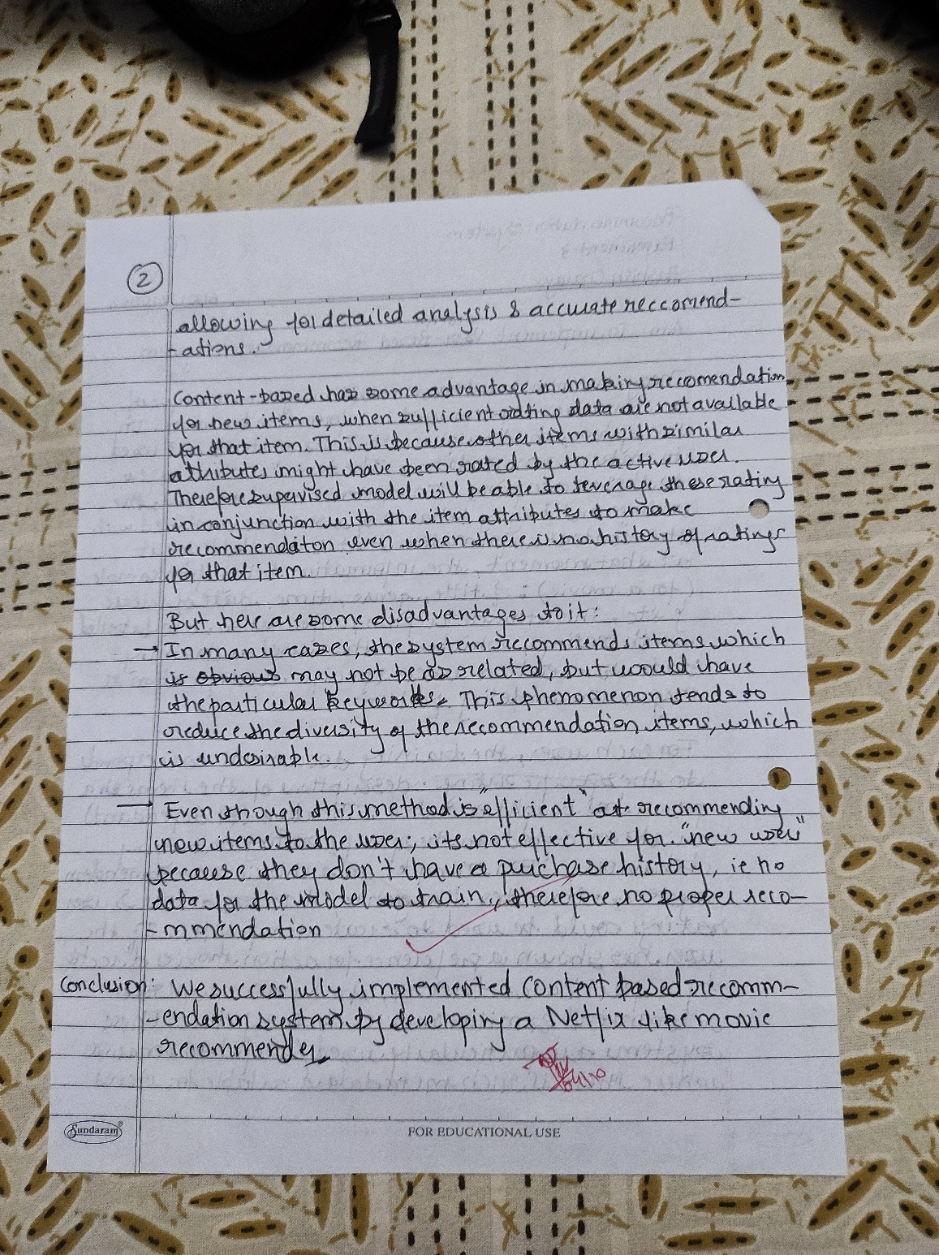 2
allowing for detailed analysis & accurate reccomend-
-ations.
Content-based has some advantage in making recomendation
for new items, when sufficient rating data are not available
for that item. This is because other items with similar
attributes might have been rated by the active user.
Therefore supervised model will be able to leverage these rating
in conjunction with the item attributes to make
recommendaiton even when there is no a history of ratings
for that item.
But here are some disadvantages to it:
→ In many cases, the system recommends items which
is obvious may not be as related, but would have
the particular keywords. This phenomenon tends to
reduce the diversity of the recommendation items, which
is undesirable.
→ Even though this method is "efficient" at recommending
new items to the user; its not effective for "new user"
because they don't have a purchase history, ie no
data for the model to train, therefore no proper reco-
-mmendation
Conclusion: We successfully implemented Content based recomm-
-endation system by developing a Netflix like movie
recommender
Sundaram FOR EDUCATIONAL USE